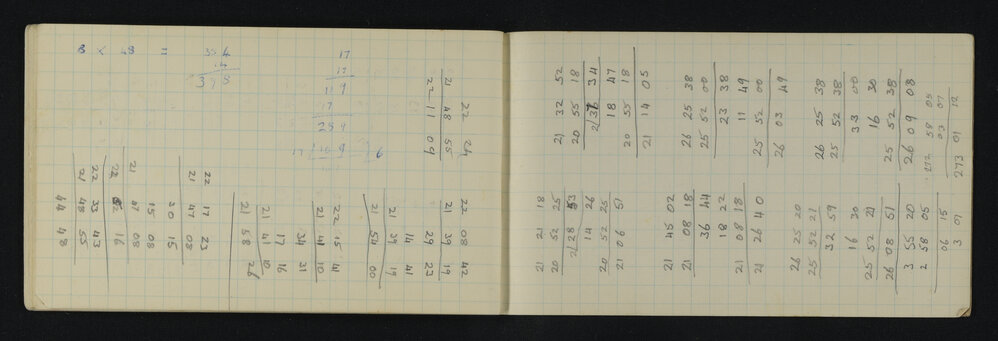 17
17
17
289
22 08 42
21 39 19
29 23
14 41
21 39 19
21 54 00
22 15 41
21 41 10
34 31
17 16
21 41 10
21 58 26
21 48 55
22 17 23
21 47 08
30 15
15 08
21 47 08
22 02 16
22 33 43
21 48 55
44 48
21 21 18
20 52 25
28 53
14 26
20 52 25
21 06 51
21 45 02
21 08 18
36 44
18 22
21 08 18
21 26 40
26 25 20
25 52 21
32 59
16 30
25 52 21
26 08 51
3 55 20
2 58 05
06 15
3 01
21 32 52
20 55 18
34
18 47
20 55 18
21 14 05
26 25 38
25 52 00
23 38
11 49
25 52 00
26 03 49
26 25 38
25 52 38
33 00
16 30
25 52 38
26 09 08
272 58 05
03 07
273 01 12